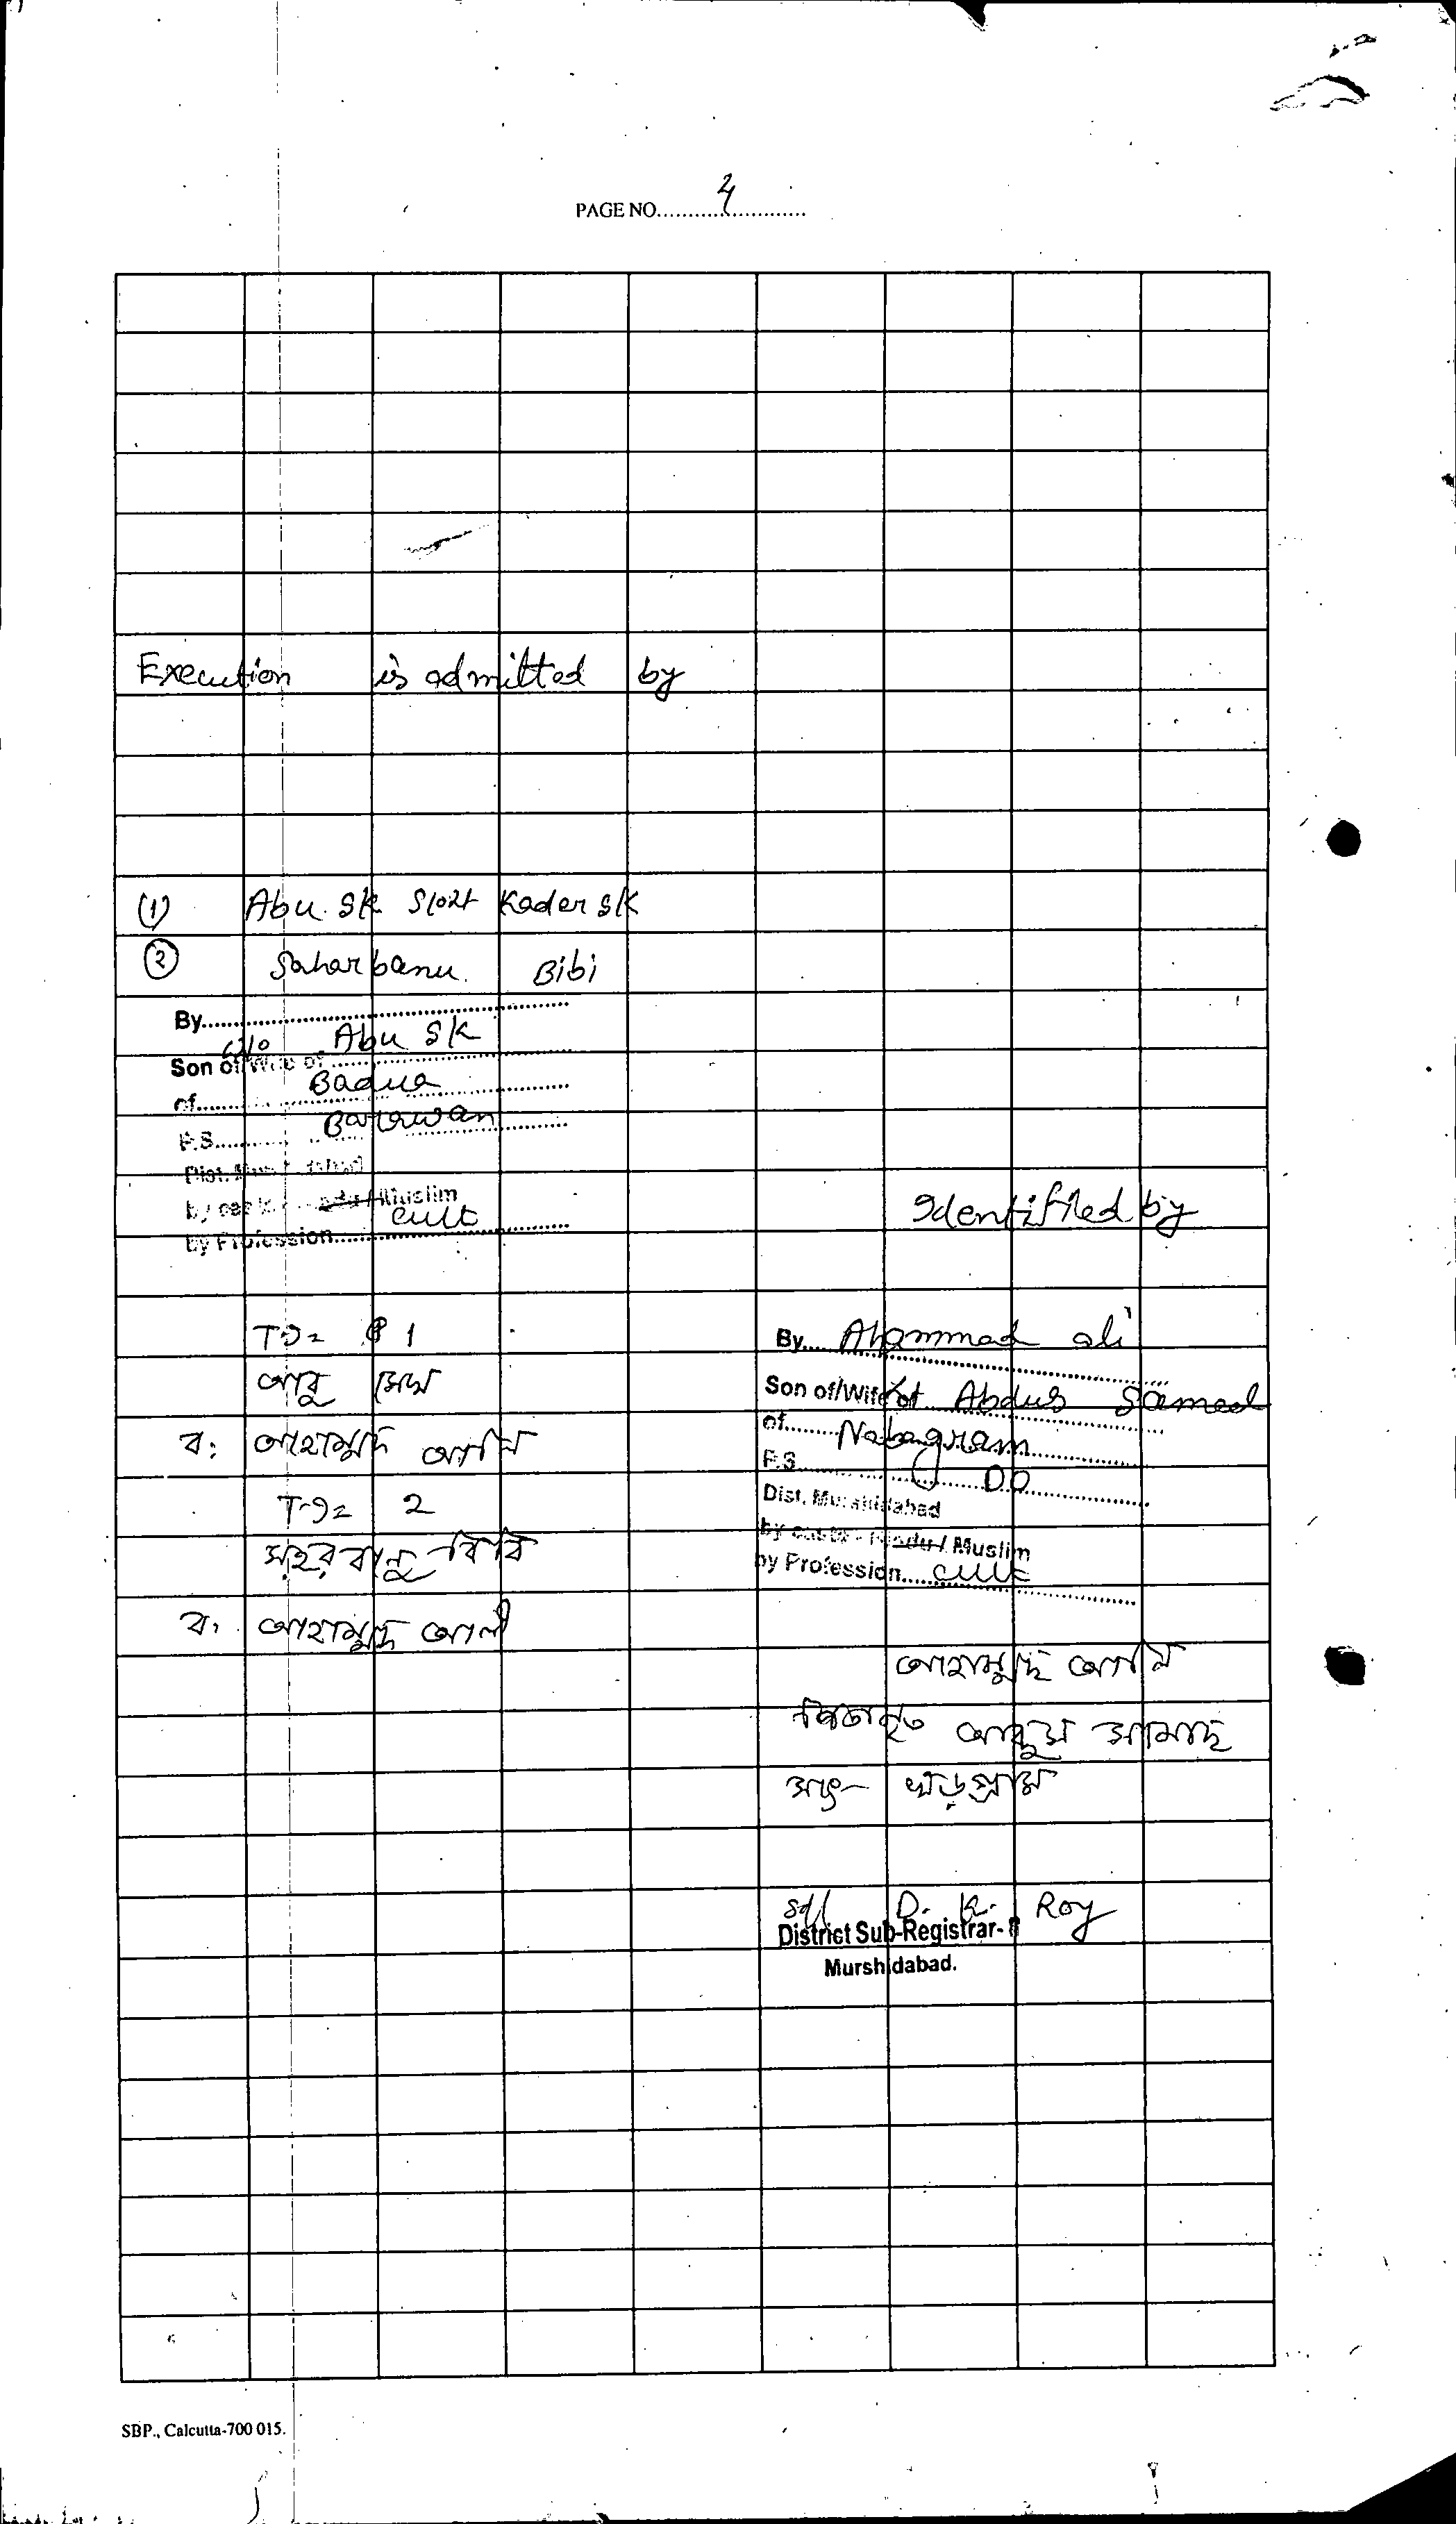 PAGE NO. 4
Execution is admitted by
(1) Abu Sk S/o Lt Kader Sk
(2) Saharbanu Bibi
By
W/o Abu Sk
Son of/Wife of
of Badua
P.S. Barwan
Dist. Murshidabad
by caste - Hindu / Muslim
by Profession Cult
Identified by
1
আবু সেখ
ব: আহাম্মদ আলি
2
সহরবানু বিবি
ব: আহাম্মদ আলী
By Ahammad ali
Son of/Wife of Lt Abdus Samad
of Nabagram
P.S. DO
Dist. Murshidabad
by caste - Hindu / Muslim
by Profession Cult
আহাম্মদ আলি
পিতামৃত আব্দুস সামাদ
সাং- খড়গ্রাম
Sd/ D. K. Roy
District Sub-Registrar-II
Murshidabad.
SBP., Calcutta-700 015.